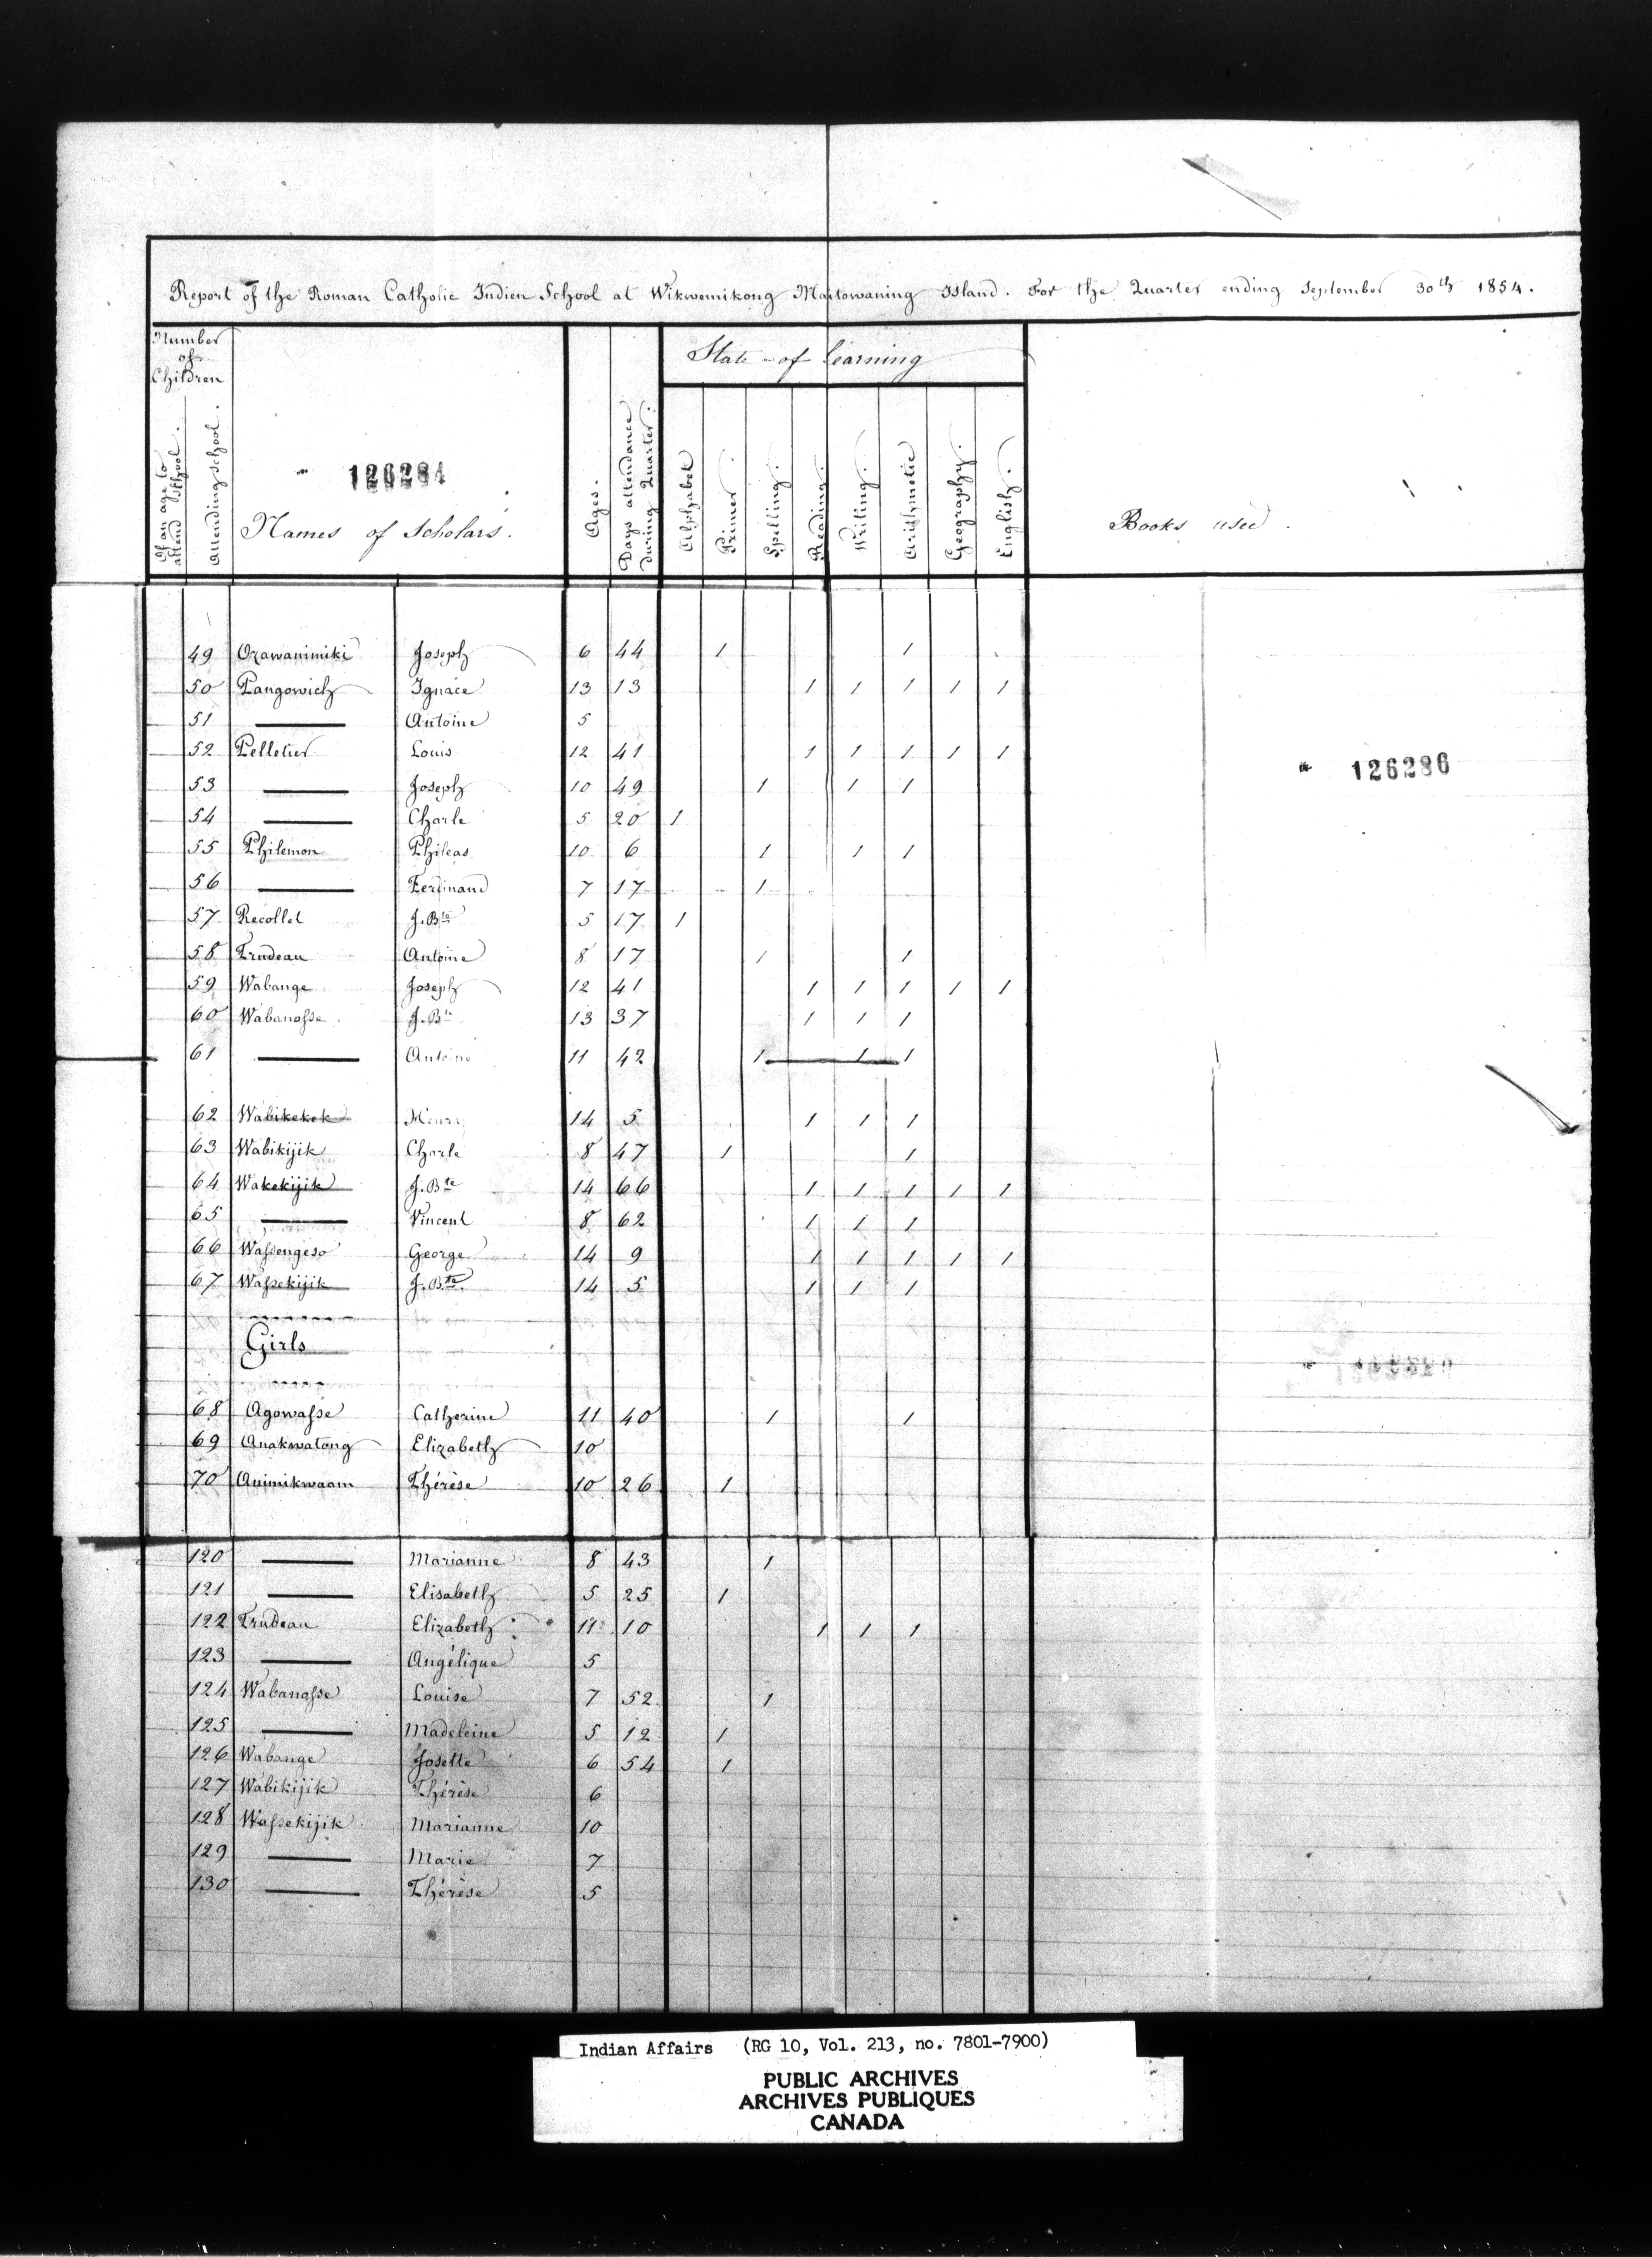 Report of the Roman Catholic Indien School at Wikwemikong Maitowaning Island. For the Quarter ending September 30th 1854.
Number of Children
If an age to attend School.
Attending school.
126284
Names of Scholars.
Ages.
Days attendance during Quarter.
State of learning
Alphabet
Primer.
Spelling.
Reading.
Writing.
Arithmetic
Geography.
English.
Books used.
49 Ozawanimiki Joseph 6 44 1 1
50 Pangowich Ignace 13 13 1 1 1 1 1
51 —— Antoine 5
52 Pelletier Louis 12 41 1 1 1 1 1
126286
53 —— Joseph 10 49 1 1 1
54 —— Charle 5 20 1
55 Philemon Phileas 10 6 1 1 1
56 —— Ferdinand 7 17 1
57 Recollet J. Bte 5 17 1
58 Trudeau Antoine 8 17 1 1
59 Wabange Joseph 12 41 1 1 1 1 1
60 Wabanosse J. Bte 13 37 1 1 1
61 —— Antoine 11 42 1 1 1
62 Wabikekek Henri 14 5 1 1 1
63 Wabikijik Charle 8 47 1 1
64 Wakekijik J. Bte 14 66 1 1 1 1 1
65 —— Vincent 8 62 1 1 1
66 Wassengeso George 14 9 1 1 1 1 1
67 Wassekijik J. Bte. 14 5 1 1 1
Girls
68 Agowasse Catherine 11 40 1 1
69 Anakwatong Elizabeth 10
70 Animikwaam Thérèse 10 26 1
120 —— Marianne 8 43 1
121 —— Elisabeth 5 25 1
122 Trudeau Elizabeth 11 10 1 1 1
123 —— Angélique 5
124 Wabanosse Louise 7 52 1
125 —— Madeleine 5 12 1
126 Wabange Josette 6 54 1
127 Wabikijik Thérèse 6
128 Wassekijik Marianne 10
129 —— Marie 7
130 —— Thérèse 5
Indian Affairs (RG 10, Vol. 213, no. 7801-7900)
PUBLIC ARCHIVES
ARCHIVES PUBLIQUES
CANADA